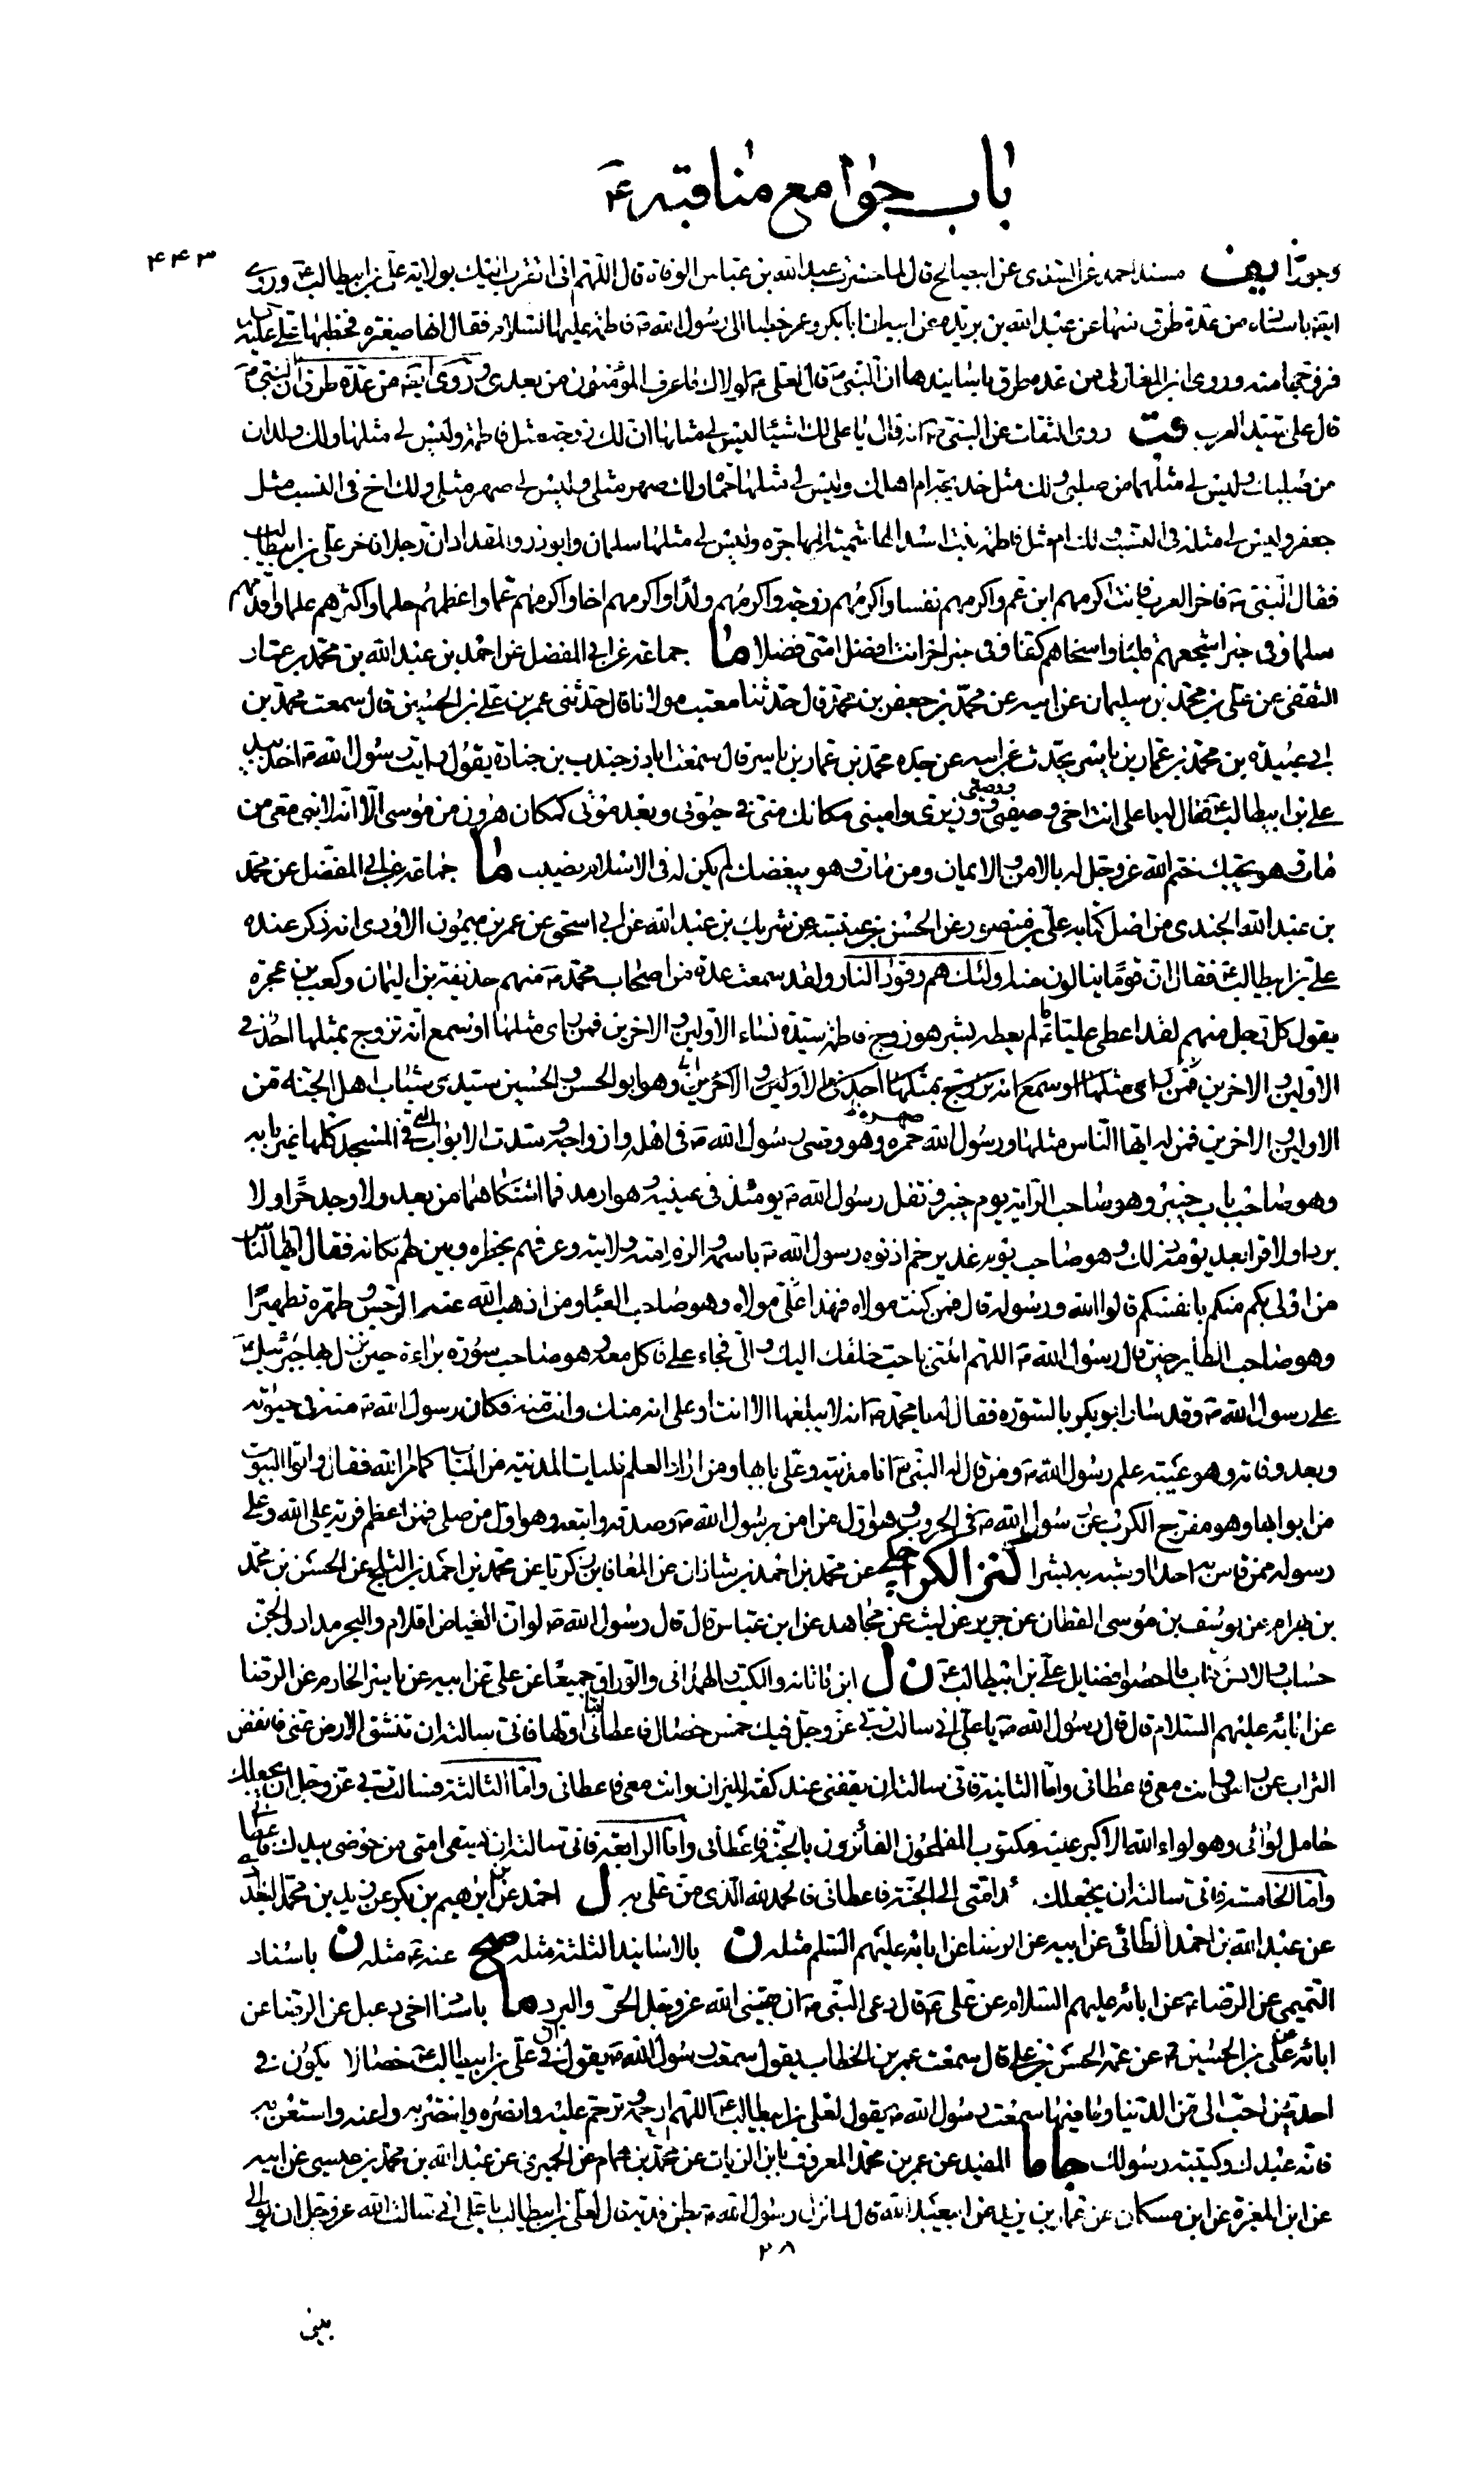 باب جوامع مناقبه ع
۴۴۳
وجودا يف مسند احمد عن السدي عن ابيصالح قال لما حضرت عبد الله بن عباس الوفاة قال اللهم اني اتقرب اليك بولاية علي بن ابيطالب ع وروي
ايضا باسناده من عدة طرق منها عن عبد الله بن بريدة عن ابيه ان ابا بكر وعمر خطبا الى رسول الله ص فاطمة عليها السلام فقال انها صغيرة فخطبها علي عليه
فزوجها منه وروى ابن المغازلي من عدة طرق باسانيدها ان النبي ص قال لعلي ع لولاك ما عرف المؤمنون من بعدي وروى ايضا من عدة طرق ان النبي ص
قال علي سيد العرب قب روى الثقات عن النبي ص انه قال يا علي لك اشياء ليس لي مثلها ان لك زوجة مثل فاطمة وليس لي مثلها ولك ولدان
من صلبك وليس لي مثلهما من صلبي ولك مثل خديجة ام اهلك وليس لي مثلها حماة ولك صهر مثلي وليس لي صهر مثلي ولك اخ في النسب مثل
جعفر وليس لي مثله في النسب ولك ام مثل فاطمة بنت اسد الهاشمية المهاجرة وليس لي مثلها سلمان وابوذر والمقداد ان رجلا فاخر علي بن ابيطالب
فقال النبي ص فاخر العرب فانت اكرمهم ابن عم واكرمهم نفسا واكرمهم زوجة واكرمهم ولدا واكرمهم اخا واكرمهم عما واعظمهم حلما واكثرهم علما واقدمهم
سلما وفي خبر اشجعهم قلبا واسخاهم كفا وفي خبر اخر انت افضل امتي فضلا ما جماعة عن ابي المفضل عن احمد بن عبد الله بن محمد بن عمار
الثقفي عن علي بن محمد بن سليمان عن ابيه عن محمد بن جعفر بن محمد قال حدثنا معتب مولانا قال حدثني عمر بن علي بن الحسين قال سمعت محمد بن
ابي عبيدة بن محمد بن عمار بن ياسر يحدث عن ابيه عن جده محمد بن عمار بن ياسر قال سمعت اباذر جندب بن جنادة يقول رايت رسول الله ص اخذ بيد
علي بن ابيطالب ع فقال له يا علي انت اخي وصفيي ووصيي ووزيري واميني مكانك مني في حيوتي وبعد موتي كمكان هرون من موسى الا انه لا نبي معي من
مات وهو يحبك ختم الله عز وجل له بالامن والايمان ومن مات وهو يبغضك لم يكن له في الاسلام نصيب ما جماعة عن ابي المفضل عن محمد
بن عبد الله الجندي من اصل كتابه علي بن منصور عن الحسن بن عنبسة عن شريك بن عبد الله عن ابي اسحق عن عمر بن ميمون الاودي انه ذكر عنده
علي بن ابيطالب ع فقال ان قوما ينالون منه اولئك هم وقود النار ولقد سمعت عدة من اصحاب محمد ص منهم حذيفة بن اليمان وكعب بن عجرة
يقول كل رجل منهم لقد اعطي علي ع ما لم يعطه بشر هو زوج فاطمة سيدة نساء الاولين والاخرين فمن راى مثلها او سمع انه تزوج بمثلها احد في
الاولين والاخرين فمن راى مثلها او سمع انه تزوج بمثلها احد في الاولين والاخرين وهو ابو الحسن والحسين سيدي شباب اهل الجنة من
الاولين والاخرين فمن له ايها الناس مثلهما ورسول الله حموه وهو وصي رسول الله ص في اهله وازواجه وسدت الابواب التي في المسجد كلها غير بابه
وهو صاحب باب خيبر وهو صاحب الراية يوم خيبر وتفل رسول الله ص يومئذ في عينيه وهو ارمد فما اشتكاهما من بعد ولا وجد حرا ولا
بردا ولا قرا بعد يومه ذلك وهو صاحب يوم غدير خم اذ نوه رسول الله ص باسمه والزم امته ولايته وعرفهم بخطره وبين لهم مكانه فقال ايها الناس
من اولى بكم منكم بانفسكم قالوا الله ورسوله قال فمن كنت مولاه فهذا علي مولاه وهو صاحب العبا ومن اذهب الله عنه الرجس وطهره تطهيرا
وهو صاحب الطاير حين قال رسول الله ص اللهم ائتني باحب خلقك اليك والي فجاء علي فاكل معه وهو صاحب سورة براءة حين نزل بها جبرئيل ع
على رسول الله ص وقد سار ابوبكر بالسورة فقال له يا محمد ص انه لا يبلغها الا انت او علي انه منك وانت منه فكان رسول الله ص منه في حيوته
وبعد وفاته وهو عيبة علم رسول الله ص ومن قال له النبي ص انا مدينة وعلي بابها ومن اراد العلم فليات المدينة من الباب كما امر الله فقال واتوا البيوت
من ابوابها وهو مفرج الكرب عن رسول الله ص في الحروب وهو اول من امن برسول الله ص وصدقه واتبعه وهو اول من صلى فمن اعظم فرية على الله وعلى
رسوله ممن قاس به احدا او شبه به بشرا كنز الكراجكي عن محمد بن احمد بن شاذان عن المعافا بن زكريا عن محمد بن احمد بن الثلج عن الحسن بن محمد
بن بهرام عن يوسف بن موسى القطان عن جرير عن ليث عن مجاهد عن ابن عباس قال قال رسول الله ص لو ان الغياض اقلام والبحر مداد والجن
حساب والانس كتاب ما احصوا فضايل علي بن ابيطالب ع ن ل ابن ناتانة والمكتب والهمداني والوراق جميعا عن علي عن ابيه عن ياسر الخادم عن الرضا
عن ابائه عليهم السلام قال قال رسول الله ص يا علي اني سالت ربي عز وجل فيك خمس خصال فاعطاني اما اولها فاني سالته ان تنشق الارض عني فانفض
التراب عن راسي وانت معي فاعطاني واما الثانية فاني سالته ان يقفني عند كفة الميزان وانت معي فاعطاني واما الثالثة فسالت ربي عز وجل ان يجعلك
حامل لوائي وهو لواء الله الاكبر عليه مكتوب المفلحون الفائزون بالجنة فاعطاني واما الرابعة فاني سالته ان تسقي امتي من حوضي بيدك فاعطاني
واما الخامسة فاني سالته ان يجعلك قائد امتي الى الجنة فاعطاني فالحمد لله الذي من علي به ل احمد بن ابرهيم بن بكر عن زيد بن محمد البغدادي
عن عبد الله بن احمد الطائي عن ابيه عن الرضا عن ابائه عليهم السلم مثله ن بالاسانيد الثلثة مثله صح عنه ع مثله ن باسناد
التميمي عن الرضا ع عن ابائه عليهم السلام عن علي ع قال دعى النبي ص ان يقيني الله عز وجل الحر والبرد ما باسناد اخي دعبل عن الرضا عن
ابائه عن علي بن الحسين ع عن عمه الحسن بن علي قال سمعت عمر بن الخطاب يقول سمعت رسول الله ص يقول في علي بن ابيطالب ع خصال لان يكون في
احديهن احب الي من الدنيا وما فيها سمعت رسول الله ص يقول لعلي بن ابيطالب ع اللهم ارحمه وترحم عليه وانصره وانتصر به واعنه واستعن به
فانه عبدك وكتيبة رسولك جا ما المفيد عن عمر بن محمد المعروف بابن الزيات عن محمد بن همام عن الحميري عن عبد الله بن محمد بن عيسى عن ابيه
عن ابن المغيرة عن ابن مسكان عن عمار بن يزيد عن ابيعبد الله قال لما نزل رسول الله ص بطن قديد قال لعلي بن ابيطالب يا علي اني سالت الله عز وجل ان يوالي
۲۸
بيني